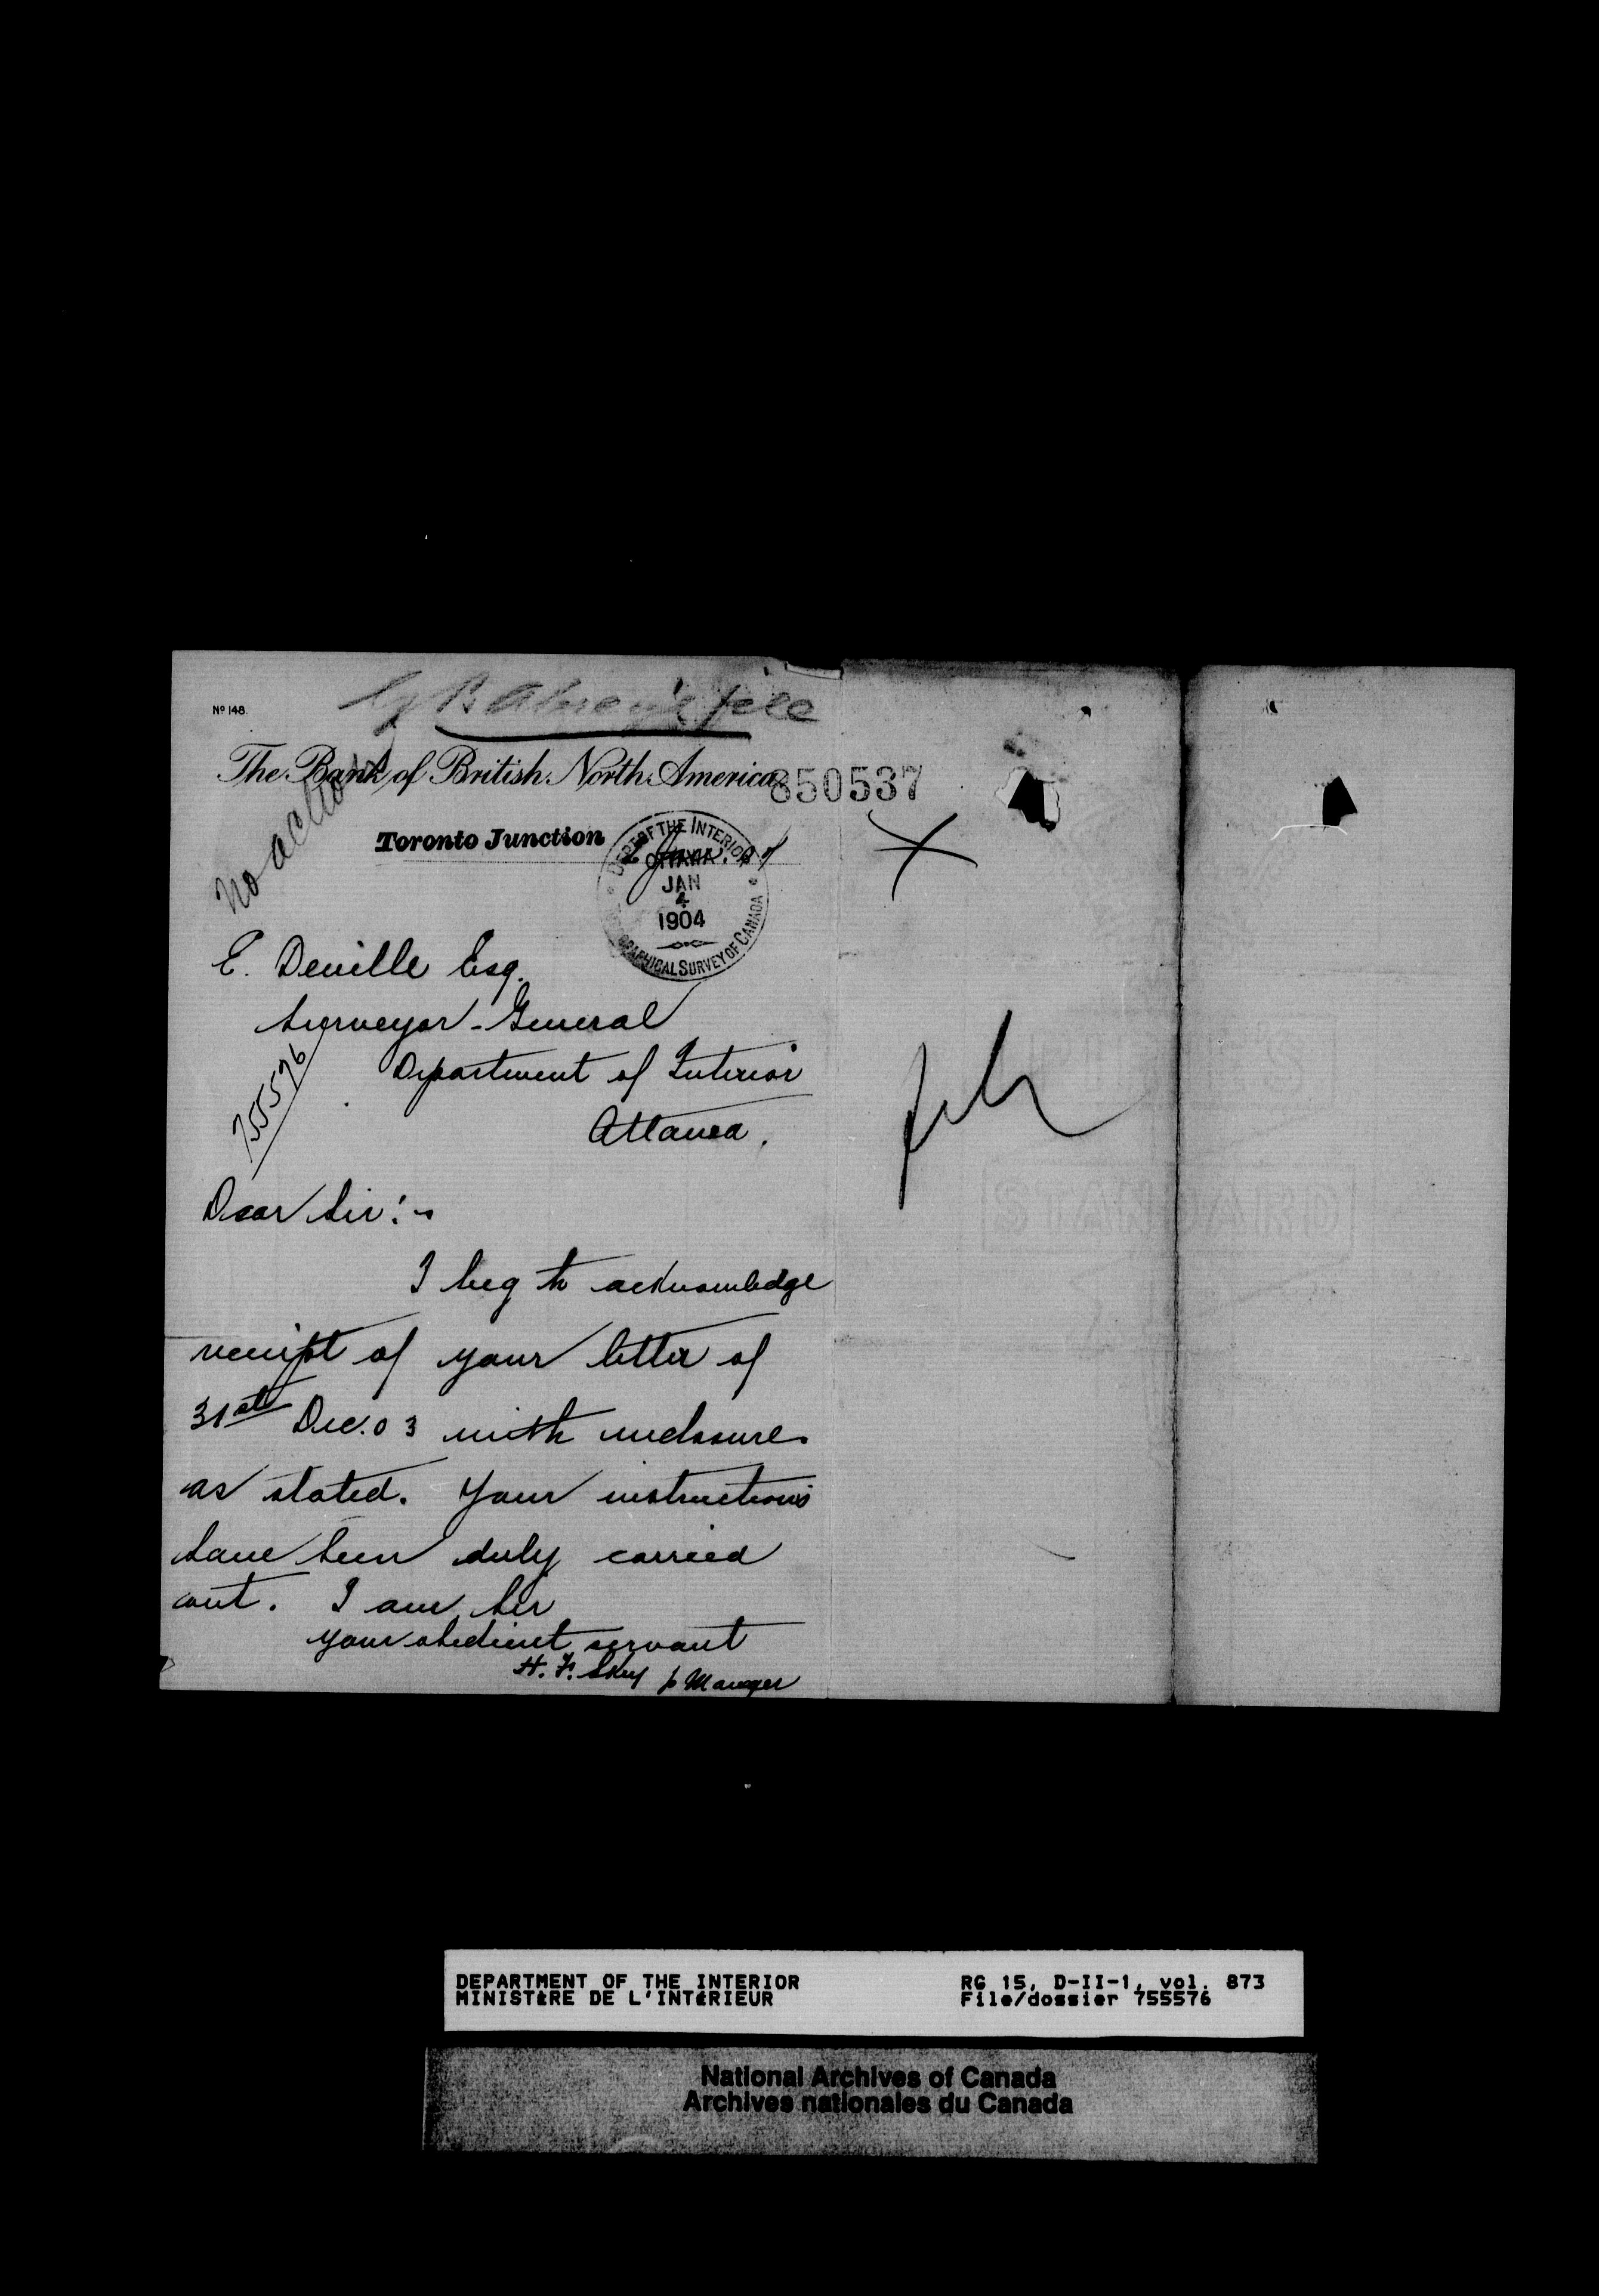 Nº 148.
file
The Bank of British North America
850537
No action
Toronto Junction 2 Jan. 04
DEPT OF THE INTERIOR
OTTAWA
JAN
4
1904
GRAPHICAL SURVEY OF CANADA
E. Deville Esq.
Surveyor-General
Department of Interior
Ottawa.
755576
Dear Sir:-
I beg to acknowledge
receipt of your letter of
31st Dec. 03 with enclosure
as stated. Your instructions
have been duly carried
out. I am, Sir
your obedient servant
H. F. Skey p Manager
STANDARD
DEPARTMENT OF THE INTERIOR
MINISTÈRE DE L'INTÉRIEUR
RG 15, D-II-1, vol. 873
File/dossier 755576
National Archives of Canada
Archives nationales du Canada